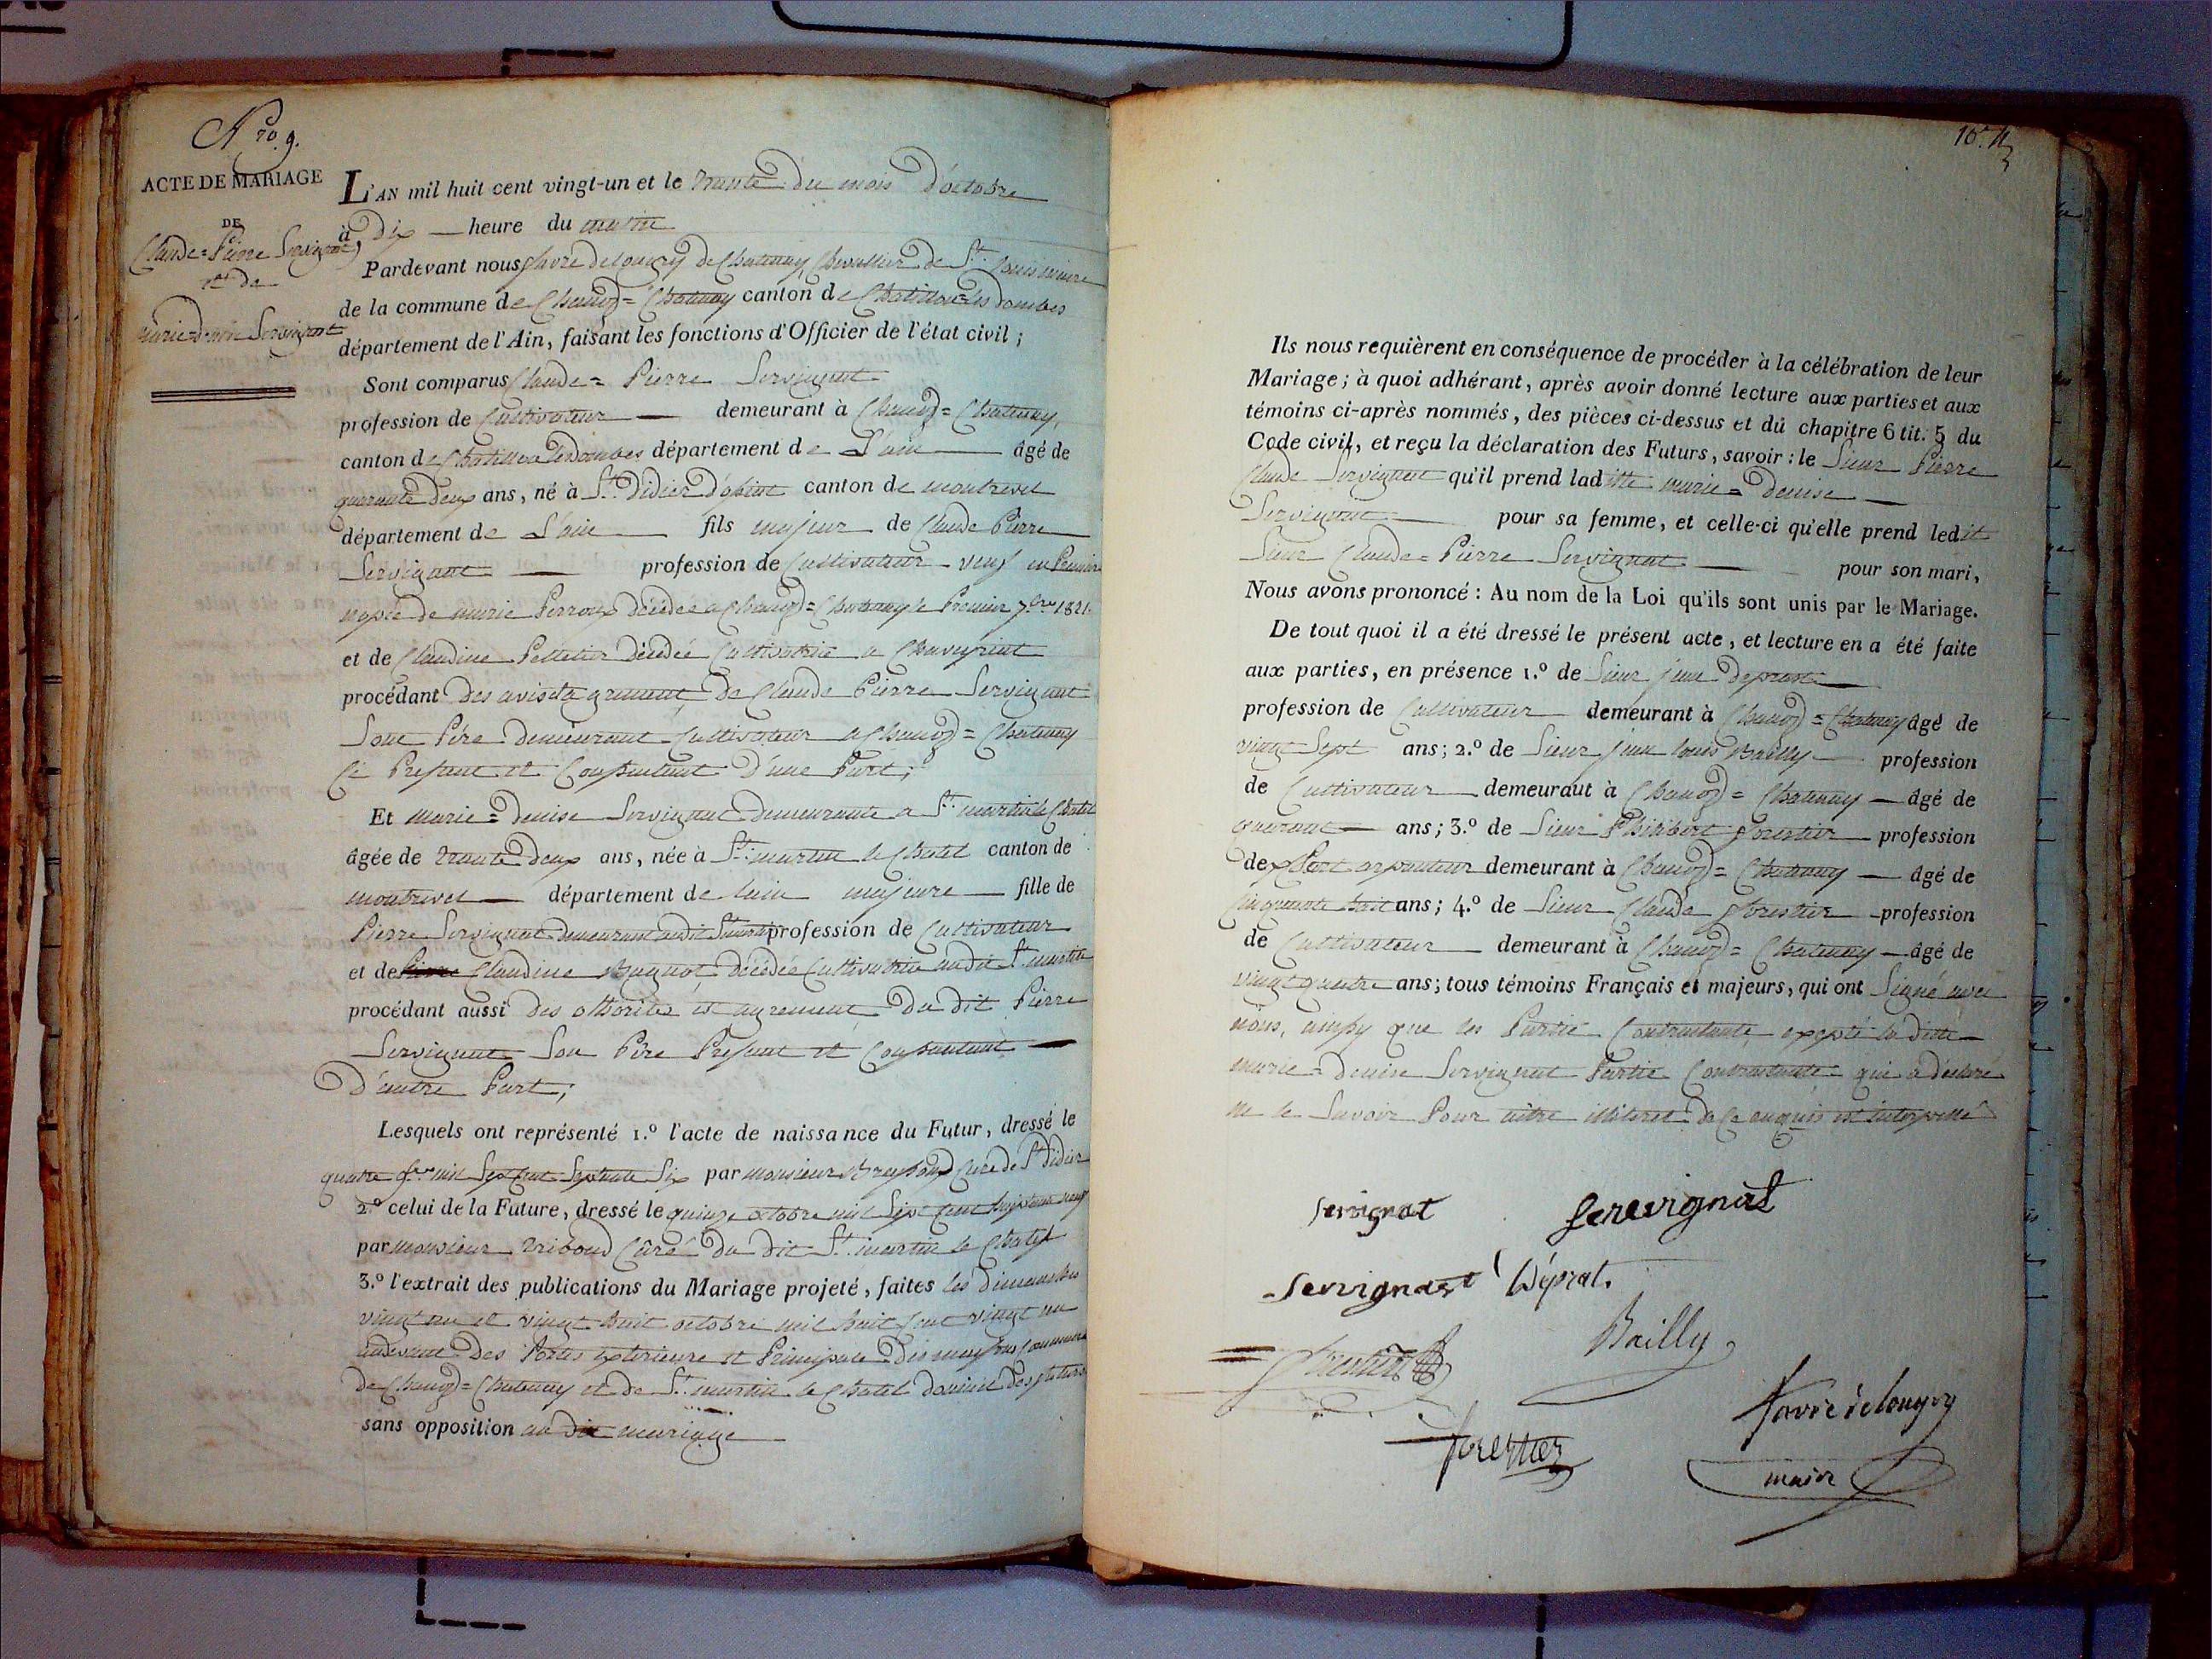 Nro. 9.
ACTE DE MARIAGE
DE
Claude=Pierre Servignat
et de
marie=denise Servignat
L'AN mil huit cent vingt-un et le trante du mois d'octobre
à Dix — heure du matin
Pardevant nous favre delongry de Chatenay, Chevallier de St. Louis maire
de la commune de Chanoz=Chatenay canton de Chatillon les dombes
département de l'Ain, faisant les fonctions d'Officier de l'état civil ;
Sont comparus Claude= Pierre Servignat
profession de Cultivateur — demeurant à Chanoz=Chatenay,
canton de Chatillon les Dombes département de L'ain — âgé de
quarante deux ans, né à St. Didier d' and canton de montrevel
département de L'ain — fils majeur de Claude Pierre
Servignat — profession de Cultivateur - veuf en Premier
nopce de marie Perroux décédée a Chanoz=Chatenay le Premier 7bre 1821.
et de Claudine Pelletier décédée Cultivatrice a Chaveyriat
procédant des avis et agrement, de Claude Pierre Servignat
Son Père demeurant Cultivateur a Chanoz=Chatenay
Ci Present et Consentent d'une Part ;
Et marie=denise Servignat demeurante a St. martin le Chatel
âgée de trante deux ans, née à St. martin le Chatel canton de
montrevel — département de lain majeure — fille de
Pierre Servignat demeurant audit St. martin profession de Cultivateur
et de Pierre Claudine décédée Cultivatrice audit St. martin
procédant aussi des ottorites et agrement du dit Pierre
Servignat Son Père Present et Consentant —
D'autre Part ;
Lesquels ont représenté 1.º l'acte de naissance du Futur, dressé le
quatre mil Sept Cent Septante Six par monsieur Curé de St Didier
2.º celui de la Future, dressé le quinze octobre mil Sept Cent huiptante neuf
par monsieur Curé du dit St. martin le Chatel
3.º l'extrait des publications du Mariage projeté, faites les dimanches
vingt un et vingt huit octobre mil huit Cent vingt un
audevant des Portes exterieure et Principale des maisons Commune
de Chanoz=Chatenay et de St. martin le Chatel domicil des futurs
sans opposition au dit mariage
10.
Ils nous requièrent en conséquence de procéder à la célébration de leur
Mariage ; à quoi adhérant, après avoir donné lecture aux parties et aux
témoins ci-après nommés, des pièces ci-dessus et du chapitre 6 tit. 5 du
Code civil, et reçu la déclaration des Futurs, savoir : le Sieur Pierre
Claude Servignat qu'il prend laditte marie=denise —
Servignat — pour sa femme, et celle-ci qu'elle prend ledit
Sieur Claude=Pierre Servignat — pour son mari,
Nous avons prononcé : Au nom de la Loi qu'ils sont unis par le Mariage.
De tout quoi il a été dressé le présent acte, et lecture en a été faite
aux parties, en présence 1.º de Sieur jean deprat —
profession de Cultivateur — demeurant à Chanoz=Chatenay âgé de
vingt Sept ans ; 2.º de Sieur jean louis Bailly — profession
de Cultivateur — demeuraut à Chanoz=Chatenay — âgé de
quarante — ans ; 3.º de Sieur Philibert forestier profession
de expert arpanteur demeurant à Chanoz=Chatenay — âgé de
Cinquante huit ans ; 4.º de Sieur Claude forestier - profession
de Cultivateur — demeurant à Chanoz=Chatenay — âgé de
vingt quatre ans ; tous témoins Français et majeurs, qui ont Signé avec
nous, ainsy que les Partie Contractante, exepté la ditte
marie=denise Servignat Partie Contractante qui a déclaré
ne le Savoir Pour aitre illiteret de ce enquis et interpellé
servignat serevignat
servignat Déprat.
Bailly
forestier
favre delongry
forestier
maire